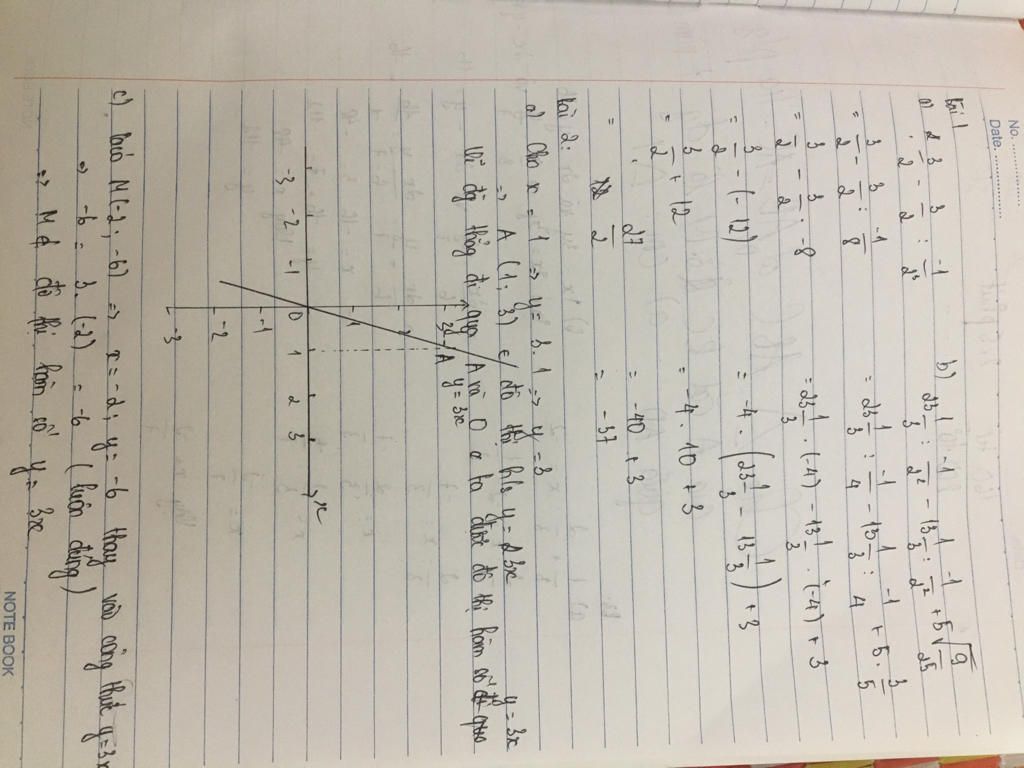 No. ........
Date. ........
bài 1
a) 3/2 - 3/2 : -1/2³
= 3/2 - 3/2 : -1/8
= 3/2 - 3/2 . -8
= 3/2 - (-12)
= 3/2 + 12
= 27/2
b) 23 1/3 : -1/2² - 13 1/3 : -1/2² + 5 √9/25
= 23 1/3 : -1/4 - 13 1/3 : -1/4 + 5 . 3/5
= 23 1/3 . (-4) - 13 1/3 . (-4) + 3
= -4 . (23 1/3 - 13 1/3) + 3
= -4 . 10 + 3
= -40 + 3
= -37
bài 2:
y = 3x
a) Cho x = 1 => y = 3.1 => y = 3
=> A (1; 3) ∈ đồ thị h/s y = 3x
Vì đg thẳng đi qua A và O ta được đồ thị hàm số
A
y = 3x
3
1
-3 -2 -1 0 1 2 3 x
-1
-2
-3
c) M(-2; -6) => x = -2; y = -6 thay vào công thức y = 3x
=> -6 = 3.(-2) = -6 (luôn đúng)
=> M ∈ đồ thị hàm số y = 3x
NOTE BOOK